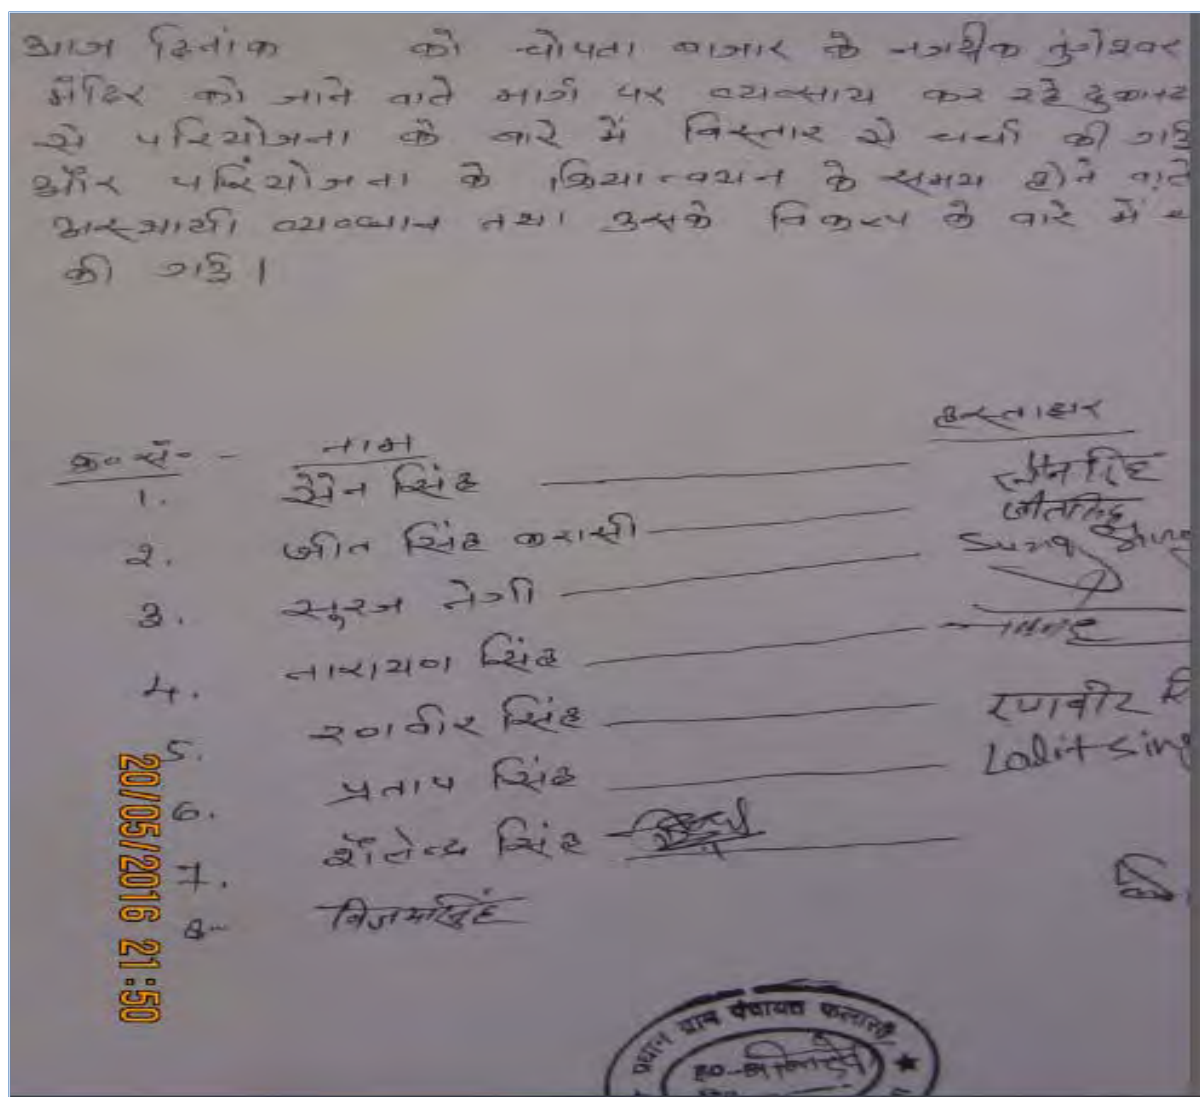 आज दिनांक को चोपता बाजार के नजदीक तुंगेश्वर
मंदिर को जाने वाले मार्ग पर व्यवसाय कर रहे
से परियोजना के बारे में विस्तार से चर्चा की गई
और परियोजना के क्रियान्वयन के समय होने वाले
अस्थायी व्यवधान तथा उसके विकल्प के बारे में
की गई।
हस्ताक्षर
क्र०सं० - नाम
1. सिंह
2. जीत सिंह
3. सूरज नेगी
4. नारायण सिंह
5. रणवीर सिंह रणवीर
6. प्रताप सिंह Lalit Sing
7. शैलेन्द्र सिंह
8- विजय सिंह
20/05/2016 21:50
प्रधान ग्राम पंचायत